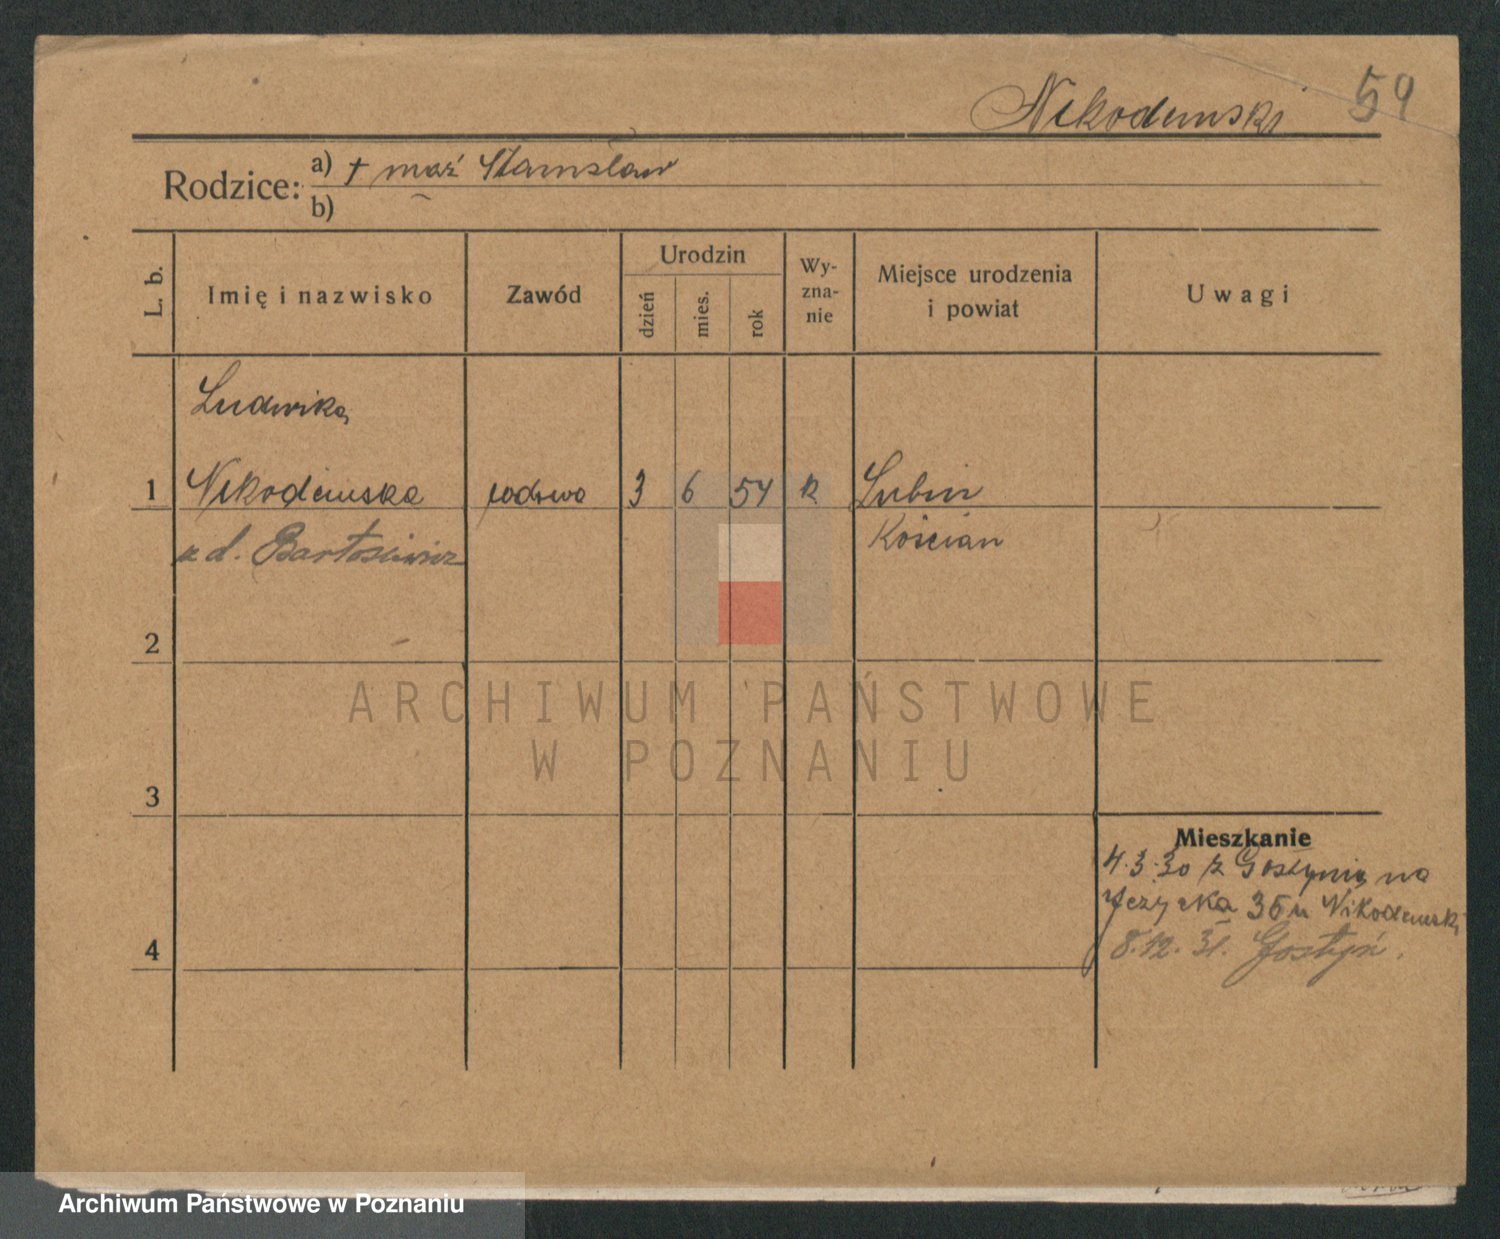 Nikodemski 59
Rodzice: a) + mąż Stanisław
b)
L. b. Imię i nazwisko Zawód Urodzin dzień mies. rok Wy-zna-nie Miejsce urodzenia i powiat Uwagi
Ludwika
1 Nikodemska wdowa 3 6 54 k Lubin
z d. Bartoszkiewicz Kościan
2
ARCHIWUM PAŃSTWOWE
W POZNANIU
3
Mieszkanie
4.3.30 z Gostynia na
Jeżycka 36 u Nikodemski
4 8.12.31. Gostyń.
Archiwum Państwowe w Poznaniu